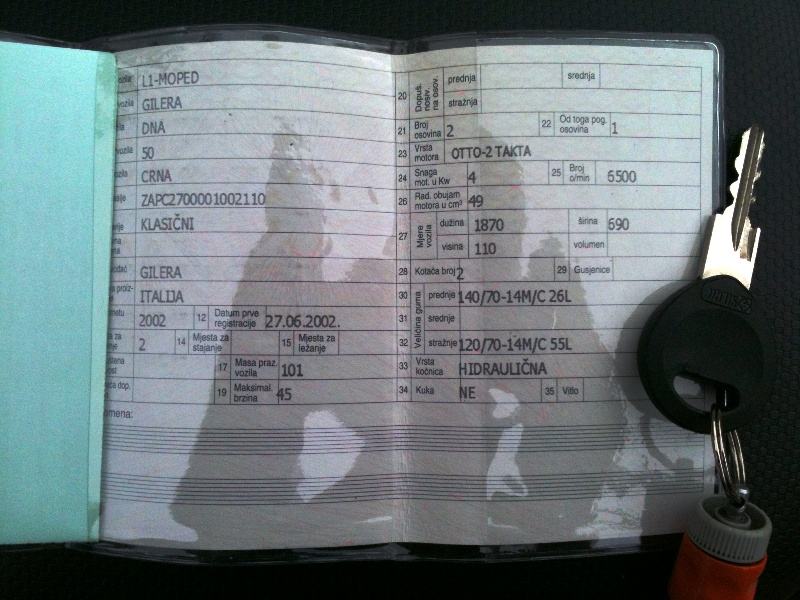 L1-MOPED
GILERA
DNA
50
CRNA
ZAPC2700001002110
KLASIČNI
GILERA
ITALIJA
2002 12 Datum prve registracije 27.06.2002.
2 14 Mjesta za stajanje 15 Mjesta za ležanje
17 Masa praz. vozila 101
19 Maksimal. brzina 45
20 Dopuš. nosiv. na osov. prednja srednja
stražnja
21 Broj osovina 2 22 Od toga pog. osovina 1
23 Vrsta motora OTTO-2 TAKTA
24 Snaga mot. u Kw 4 25 Broj o/min 6500
26 Rad. obujam motora u cm³ 49
27 Mjere vozila dužina 1870 širina 690
visina 110 volumen
28 Kotača broj 2 29 Gusjenice
30 Veličina guma prednje 140/70-14M/C 26L
31 srednje
32 stražnje 120/70-14M/C 55L
33 Vrsta kočnica HIDRAULIČNA
34 Kuka NE 35 Vitlo